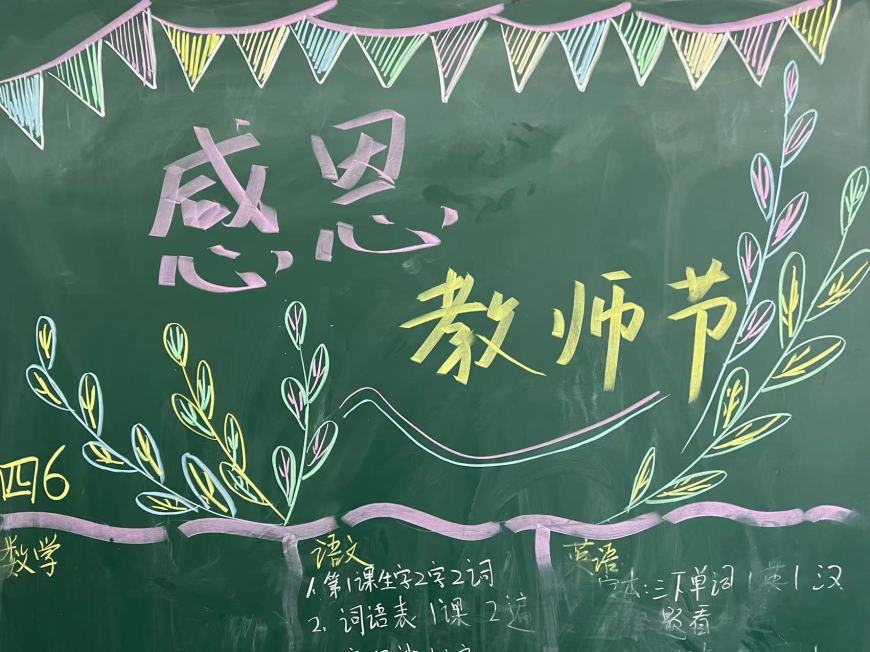 感恩
教师节
四6
数学
语文
1.第1课生字2字2词
2.词语表1课2遍
英语
字本:三下单词1英1汉